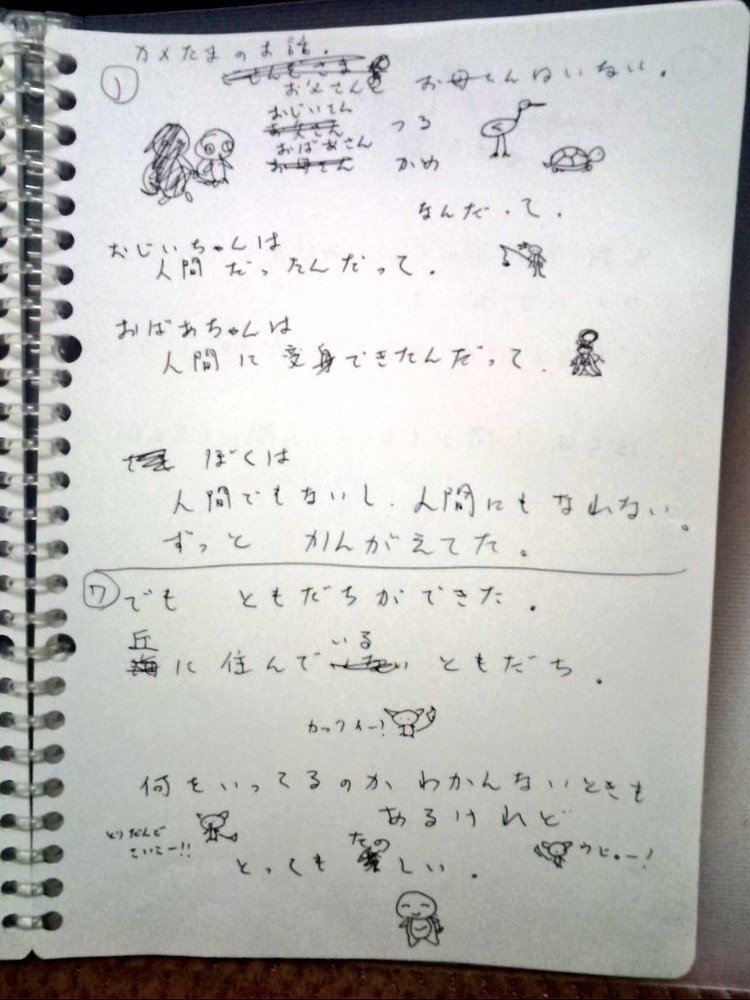 カメたまのお話.
①
お父さんと お母さんはいない.
おじいさん
お父さん つる
おばあさん
お母さん かめ
なんだって.
おじいちゃんは
人間だったんだって.
おばあちゃんは
人間に変身できたんだって.
ぼくは
人間でもないし、人間にもなれない。
ずっと かんがえてた。
⑦ でも ともだちができた.
丘 いる
海に住んで ともだち.
カックイー!
何をいってるのか、わかんないときも
あるけれど
とりだんご
こいこー!!
たの
とっても しい.
ウヒョー!